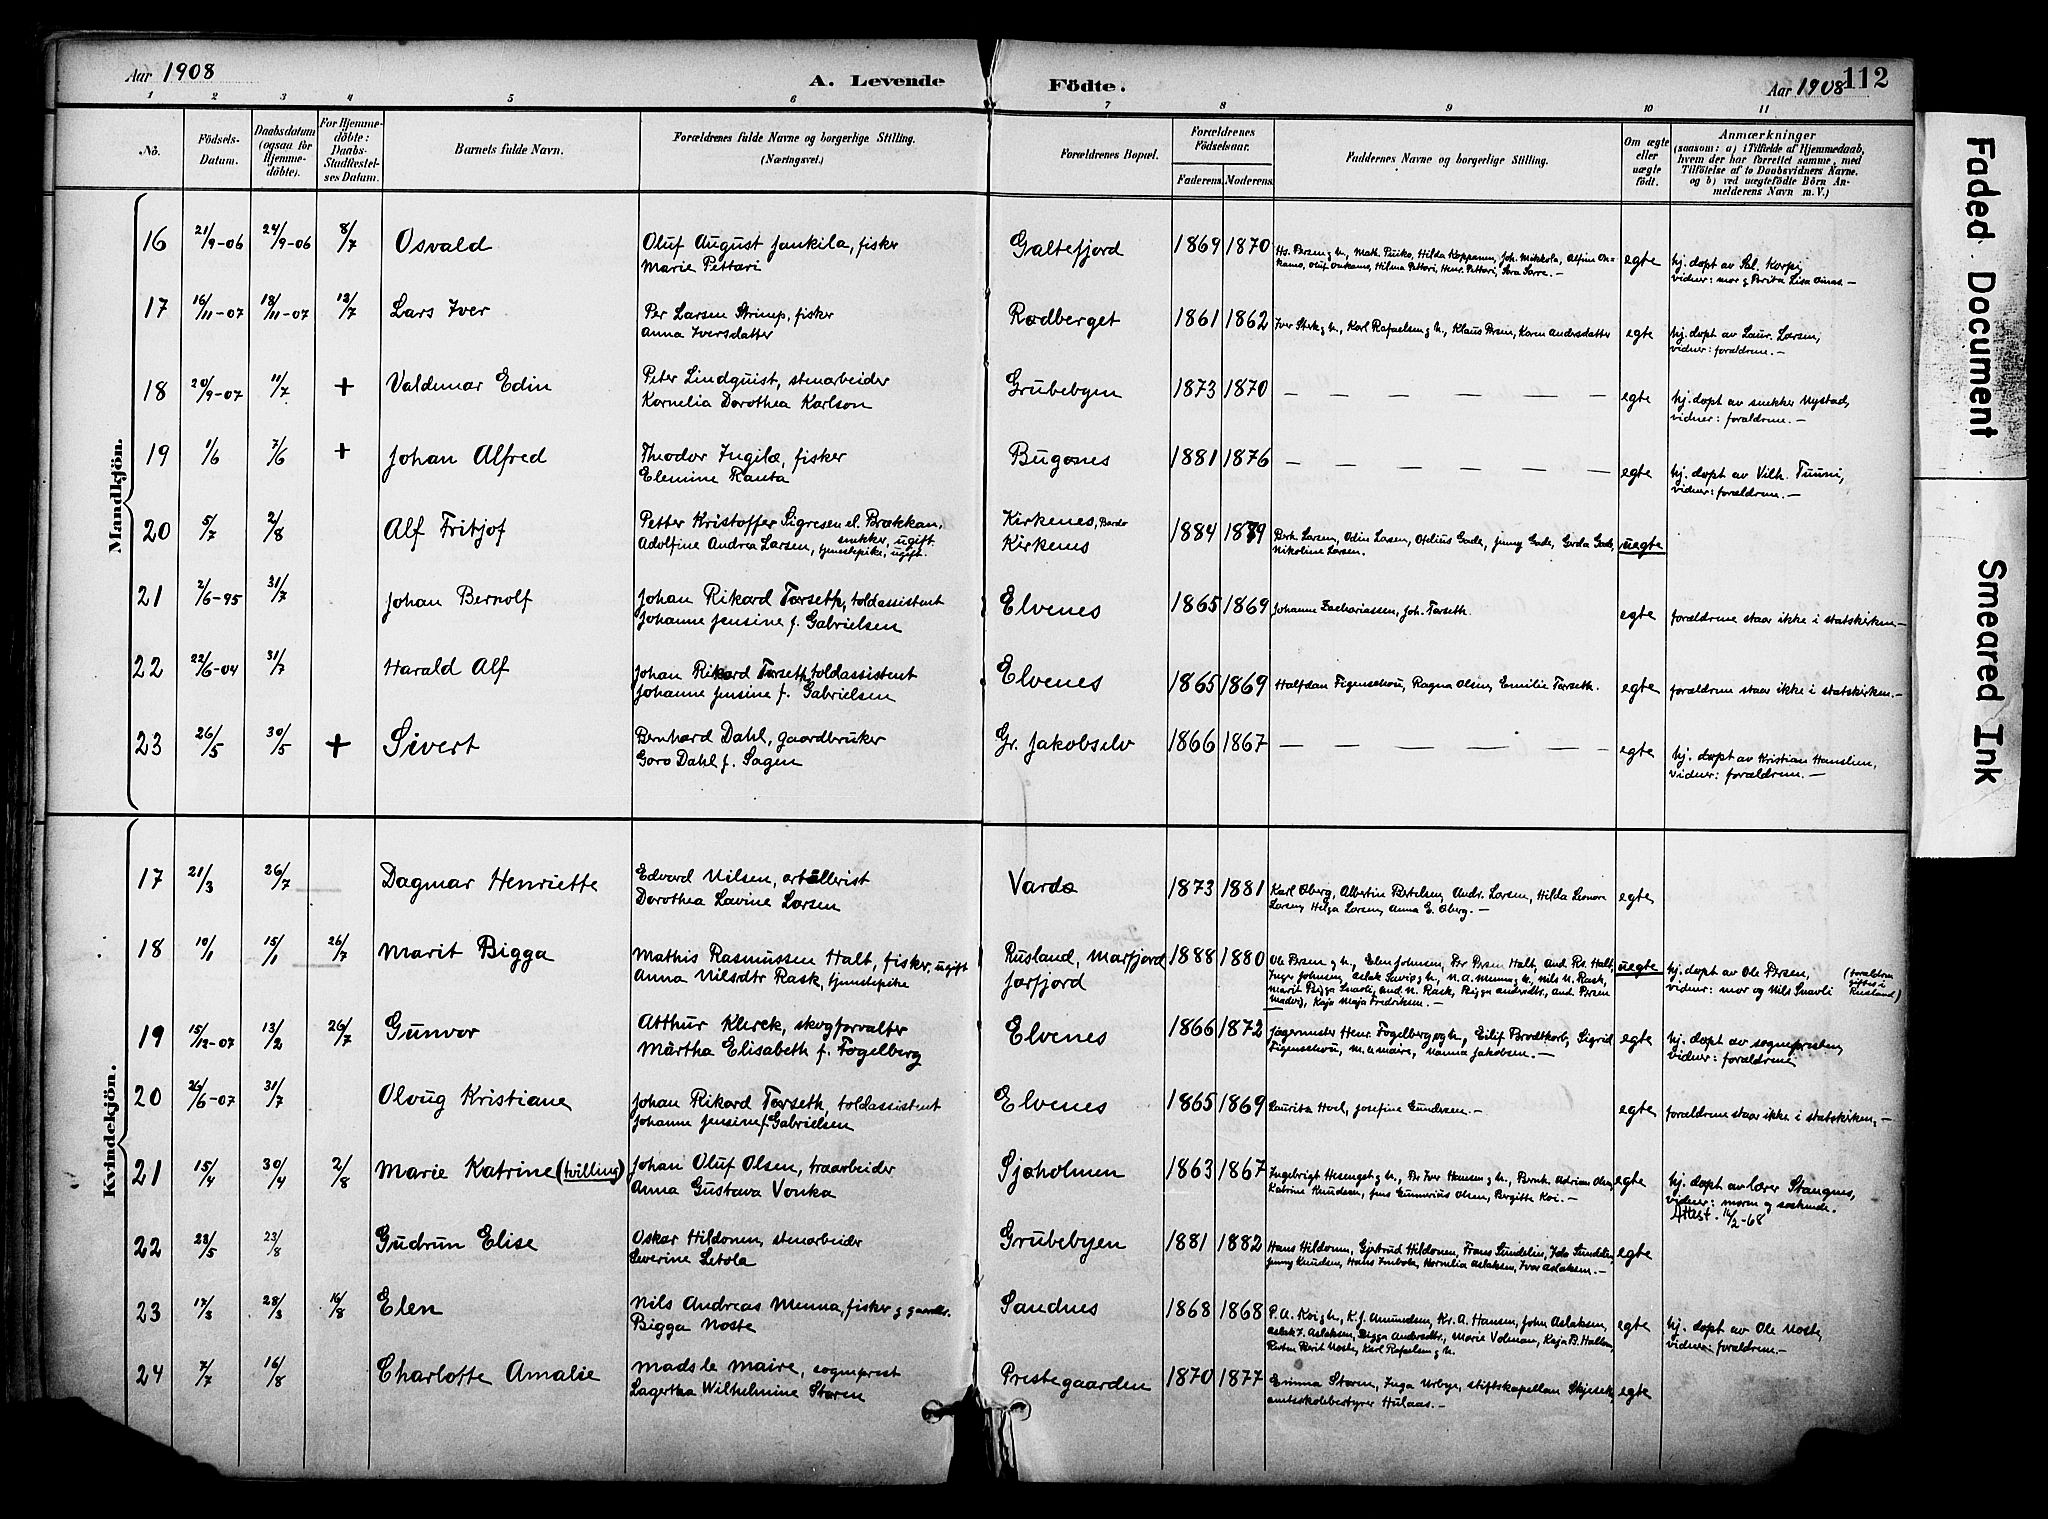 Aar 1908
A. Levende Födte.
Aar 1908
112
1 2 3 4 5 6 7 8 9 10 11
No.
Födsels-Datum.
Daabsdatum (ogsaa for Hjemmedöbte).
For Hjemmedöbte: Daabs-Stadfæstelses Datum.
Barnets fulde Navn.
Forældrenes fulde Navne og borgerlige Stilling. (Næringsvei.)
Forældrenes Bopæl.
Forældrenes Födselsaar.
Faderens. Moderens.
Faddernes Navne og borgerlige Stilling.
Om ægte eller uægte födt.
Anmærkninger
(saasom: a) i Tilfælde af Hjemmedaab, hvem der har forrettet samme, med Tilföielse af to Daabsvidners Navne. og b) ved uægtefödte Börn Anmelderens Navn m. V.)
Mandkjön.
16 21/9-06 24/9-06 8/7 Osvald
Oluf August Jankila, fisker
Marie Pettari
Galtefjord 1869 1870
egte
hj. døpt av Sal. Korpi,
17 16/11-07 18/11-07 12/7 Lars Iver
Per Larsen Strimp, fisker
Anna Iversdatter
Rødberget 1861 1862
Karl Rafaelsen g h., Klaus Persen, Karen Andersdatter
egte
hj. døpt av Laur. Larsen,
vidner: forældrene. —
18 20/9-07 11/7 + Valdemar Edin
Peter Lindquist, stenarbeider
Kornelia Dorothea Karlson
Grubebyen 1873 1870 — — — — — —
egte
hj. døpt av snekker Nystad,
vidner: forældrene. —
19 1/6 7/6 + Johan Alfred
Theodor Ingilæ, fisker
Elemine Ranta
Bugønes 1881 1876 — — — — — —
egte
hj. døpt av Vilh. Tuuni,
vidner: forældrene. —
20 5/7 2/8 Alf Fritjof
Petter Kristoffer Sigresen el. Brækkan, snekker, ugift.
Adolfine Andrea Larsen, tjenestepike, ugift.
Kirkenes, Bardo
Kirkenes
1884 1879
Berh. Larsen, Odin Larsen, Otelius Gade, Jenny Gade, Gerda Gade,
Nikoline Larsen.
uegte
21 2/6-95 31/7 Johan Bernolf
Johan Rikard Tørseth, toldassistent
Johanne Jensine f. Gabrielsen
Elvenes 1865 1869
Johanne Zachariassen, Joh. Tørseth.
egte
forældrene staar ikke i statskirken —
22 22/6-04 31/7 Harald Alf
Johan Rikard Tørseth, toldassistent
Johanne Jensine f. Gabrielsen
Elvenes 1865 1869
Halfdan Figenschou, Ragna Olsen, Emilie Tørseth.
egte
forældrene staar ikke i statskirken. —
23 26/5 30/5 + Sivert
Bernhard Dahl, gaardbruker
Goro Dahl f. Sagen
Gr. Jakobselv 1866 1867 — — — — — —
egte
hj. døpt av Kristian Hanslien,
vidner: forældrene. —
Kvindekjön.
17 21/3 26/7 Dagmar Henriette
Edvard Nilsen, artillerist
Dorothea Lavine Larsen
Vardø 1873 1881
Karl Øberg, Albertin Bertelsen, Andr. Larsen, Hilda Leonore
Larsen, Helga Larsen, Anna E. Øberg. —
egte
18 10/1 15/1 26/7 Marit Bigga
Mathis Rasmussen Halt, fisker, ugift
Anna Nilsdtr Rask, tjenstepike
Rusland, Marfjord
Jarfjord
1888 1880
Ole Persen g h., Elen Johnsen, Per Persen Halt, And. Rs. Halt,
Madvi, Kaja Maja Fredriksen. —
uegte
hj. døpt av Ole Persen,
vidner: mor og Nils Snavli
(forældrene giftes i Rusland)
19 15/12-07 13/2 26/7 Gunvor
Atthur Klerck, skogforvalter
Märtha Elisabeth f. Fogelberg
Elvenes 1866 1872
Jægermester Henr. Fogelberg og h., Eilif Brodtkorb, Sigrid
Figenschou, M. le Maire, Nanna Jakobsen. —
egte
hj. døpt av sognepresten,
vidner: forældrene
20 26/6-07 31/7 Olvug Kristiane
Johan Rikard Tørseth, toldassistent
Johanne Jensine f. Gabrielsen
Elvenes 1865 1869
Laurits Hoel, Josefine Gundersen. —
egte
forældrene staar ikke i statskirken. —
21 15/4 30/4 2/8 Marie Katrine (tvilling)
Johan Oluf Olsen, træarbeider
Anna Gustava Vonka
Sjøholmen 1863 1867
Ingebrigt Hesenget g h., Per Iver Hansen g h., Bernh. Adrian Olsen,
Katrine Knudsen, Jens Gunnerius Olsen, Birgitte Koi. —
egte
hj. døpt av lærer Stangnes,
vidner: moren og søskende.
Attest. 16/2-68
22 23/5 23/8 Gudrun Elise
Oskar Hildonen, stenarbeider
Severine Letola
Grubebyen 1881 1882
Hans Hildonen, Gjertrud Hildonen, Frans Sundelin, Ida Sundelin,
Jenny Knudsen, Hans Imbola, Kornelia Aslaksen, Iver Aslaksen. —
egte
23 17/3 28/3 16/8 Elen
Nils Andreas Menna, fisker g gaardbr.
Bigga Noste
Sandnes 1868 1868
P. A. Koi g h., K. J. Amundsen, Kr. A. Hansen, John Aslaksen,
Aslak J. Aslaksen, Bigga Andersdtr, Marie Volman, Kaja B. Halten,
egte
hj. døpt av Ole Noste,
vidner: forældrene. —
24 7/7 16/8 Charlotte Amalie
Mads le Maire, sogneprest
Lagertha Wilhelmine Støren
Prestegaarden 1870 1877
Emma Støren, Inga Urbye, stiftskapellan Skjeseth,
amtsskolebestyrer Hulaas. —
egte
Faded Document
Smeared Ink